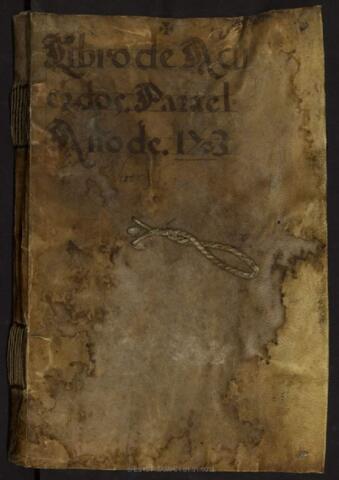 Libro de Acu
erdos. Para el
Año de. 1703